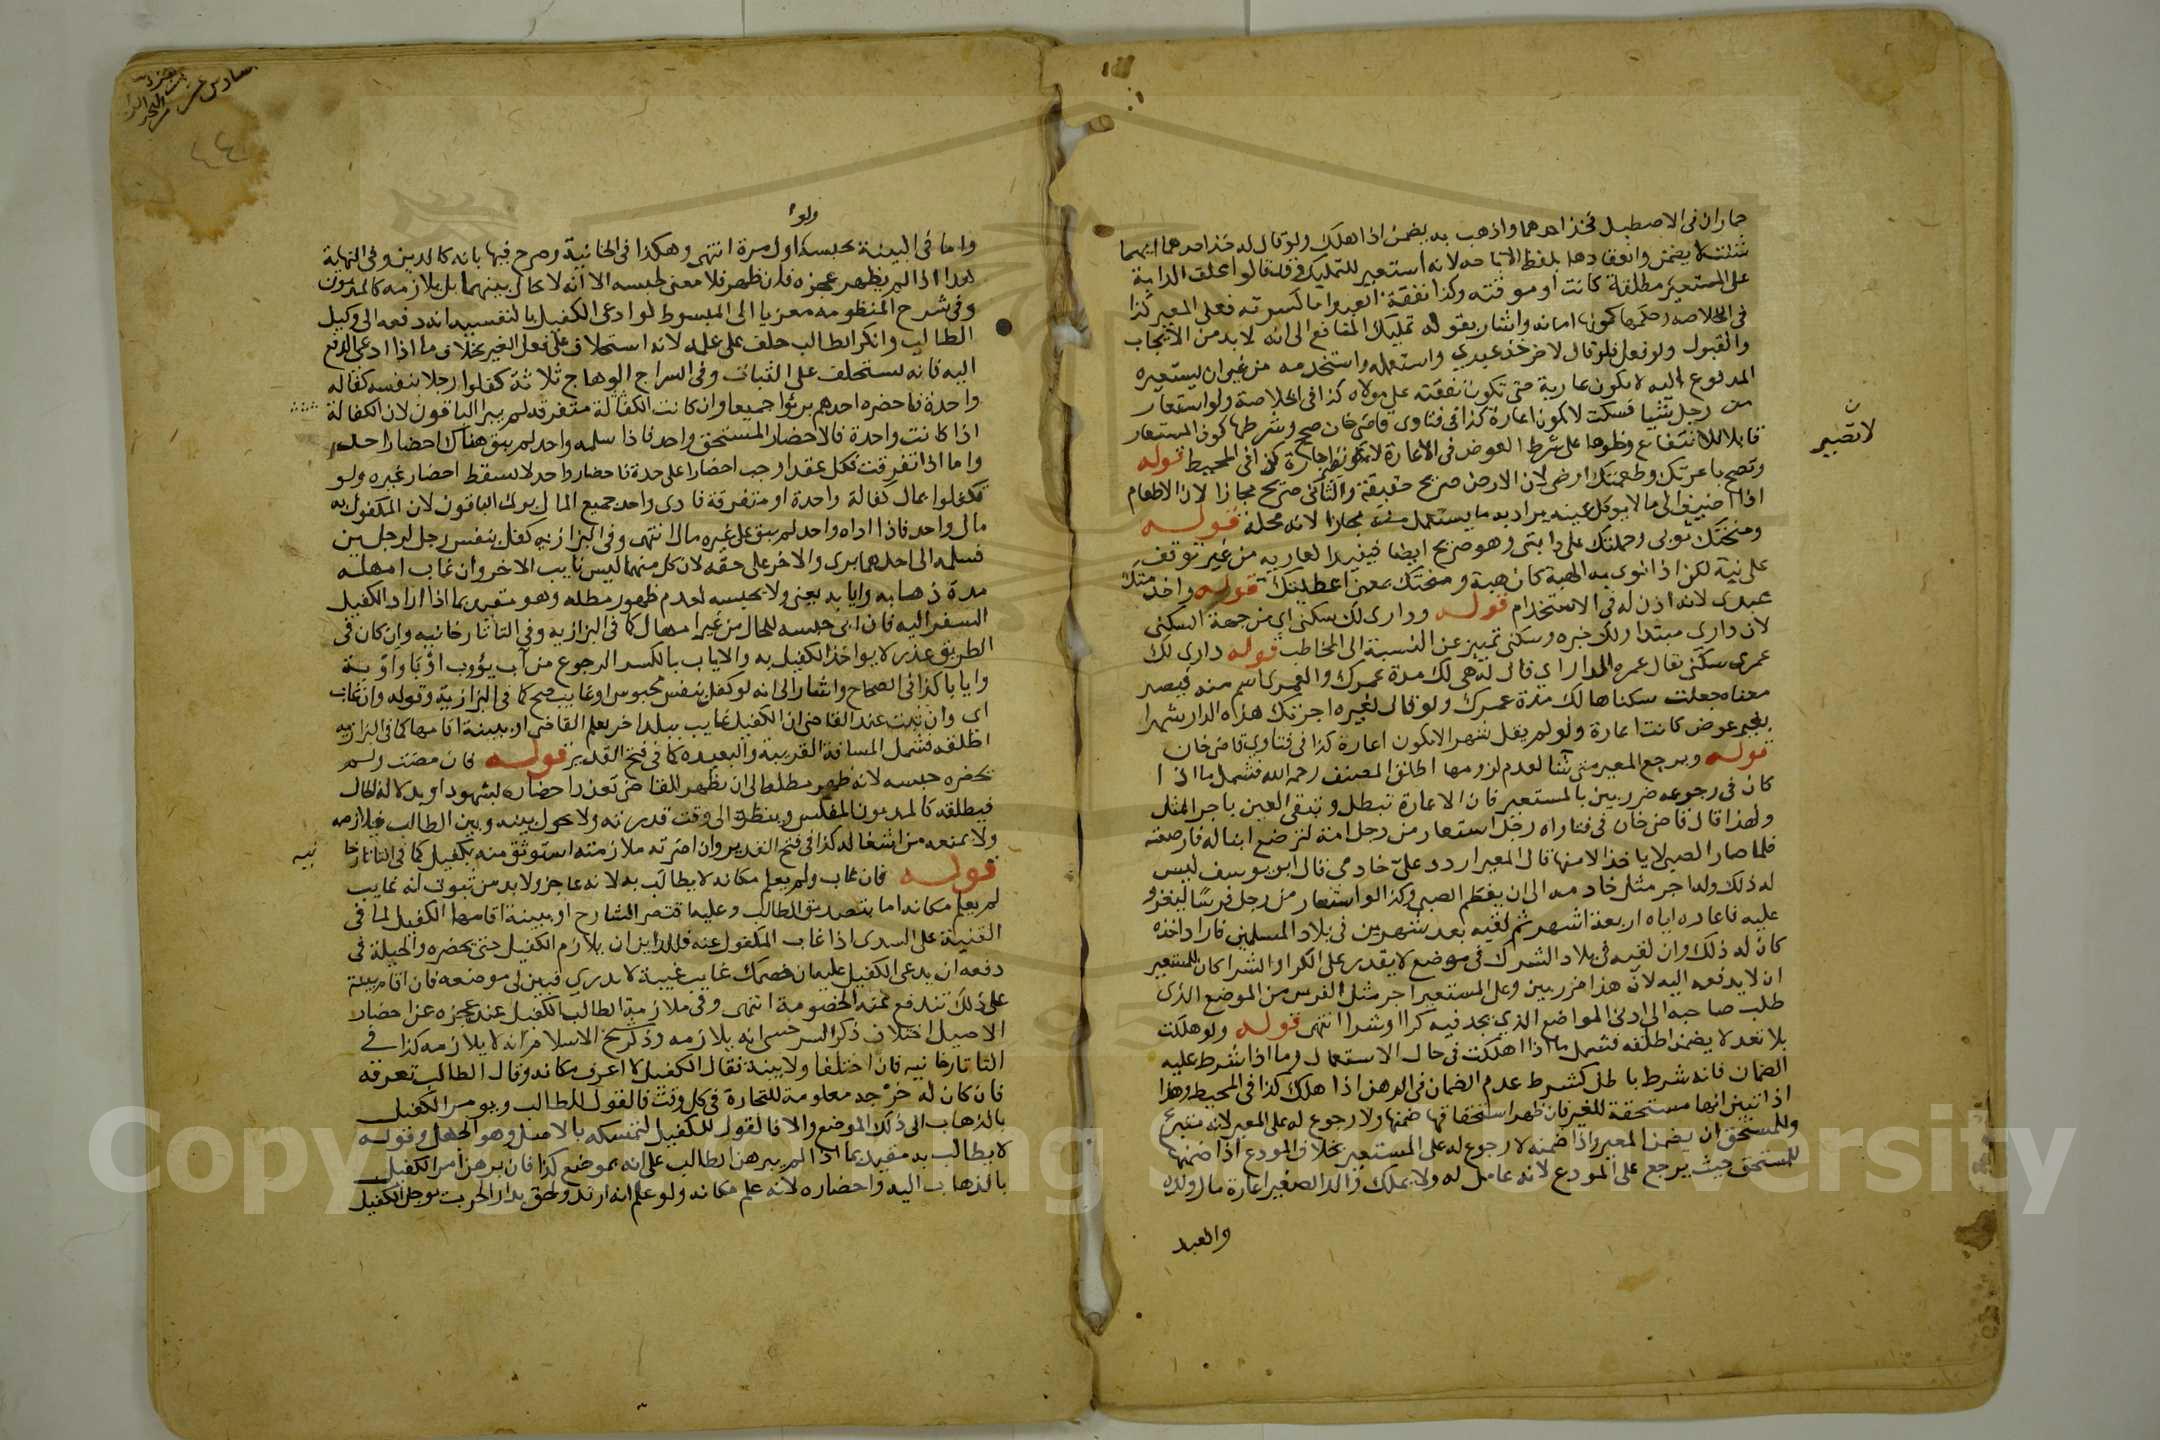 حماران في الاصطبل فخذ احدهما واذهب به يضمن اذا هلك ولو قال له خذ احدهما ايهما
شئت لا يضمن وانعقادها بلفظ الاباحة لانه استعير للتمليك في قالوا علف الدابة
على المستعير مطلقة كانت او موقتة وكذا نفقة العبد اما كسوته فعلى المعير كذا
في الخلاصة وحكمها كونها امانة واشار بقوله تمليك المنافع الى انه لا بد من الايجاب
والقبول ولو فعلا فلو قال لاخر خذ عبدي واستعمله واستخدمه من غير ان يستعيره
المدفوع اليه لا يكون عارية حتى تكون نفقته على مولاه كذا في الخلاصة ولو استعار
من رجل شيئا فسكت لا تكون اعارة كذا في فتاوى قاضي خان صح وشرطها كون المستعار
قابلا للانتفاع وخلوها على شرط العوض في الاعارة لا تصير اجارة كذا في المحيط قوله
وتصح باعرتك واطعمتك ارضي لان الارض صريح حقيقة والثاني صريح مجازا لان الاطعام
اذا اضيف الى ما لا يوكل عينه يراد به ما يستغل منه مجازا لانه محله قوله
ومنحتك ثوبي وحملتك على دابتي وهو صريح ايضا فيفيد العارية من غير توقف
على نية لكن اذا نوى به الهبة كان هبة ومنحتك بمعنى اعطيتك قوله واخدمتك
عبدي لانه اذن له في الاستخدام قوله وداري لك سكنى اي من جهة السكنى
لان داري مبتدا ولك خبره وسكنى تمييز عن النسبة الى المخاطب قوله داري لك
عمري سكنى يقال عمره الدار اي قال له هي لك مدة عمرك والعمري اسم منه فيصير
معناه جعلت سكناها لك مدة عمرك ولو قال لغيره اجرتك هذه الدار شهرا
بغير عوض كانت اعارة ولو لم يقل شهرا لا تكون اعارة كذا في فتاوي قاضي خان
قوله ويرجع المعير متى شا لعدم لزومها اطلق المصنف رحمه الله فشمل ما اذا
كان في رجوعه ضرر بين بالمستعير فان الاعارة تبطل وتبقى العين باجر المثل
ولهذا قال قاضي خان في فتاواه رجل استعار من رجل امة لترضع ابنا له فارضعته
فلما صار الصبي لا ياخذ الا منها قال المعير اردد علي خادمي قال ابو يوسف ليس
له ذلك وله اجر مثل خادمه الى ان يفطم الصبي وكذا لو استعار من رجل فرسا ليغزو
عليه فاعاره اياه اربعة اشهر ثم لقيه بعد شهرين في بلاد المسلمين فاراد اخذه
كان له ذلك وان لقيه في بلاد الشرك في موضع لا يقدر على الكرا والشرا كان للمستعير
ان لا يدفعه اليه لان هذا ضرر بين وعلى المستعير اجر مثل الفرس من الموضع الذي
طلب صاحبه الى ادنى المواضع الذي يجد فيه كرا او شرا انتهى قوله ولو هلكت
بلا تعد لا يضمن اطلقه فشمل ما اذا هلكت في حال الاستعمال وما اذا شرط عليه
الضمان فانه شرط باطل كشرط عدم الضمان في الرهن اذا هلك كذا في المحيط وهذا
اذا تبين انها مستحقة للغير فان ظهر استحقاقها ضمنها ولا رجوع له على المعير لانه متبرع
وللمستحق ان يضمن المعير واذا ضمنه لا رجوع له على المستعير بخلاف المودع اذا ضمنها
للمستحق حيث يرجع على المودع لانه عامل له ولا يملك والد الصغير اعارة مال ولده
والعبد
لا تصير
سادس عشر
من البحر
ولو
واما في البينة يحبسه اول مرة انتهى وهكذا في الخانية وصرح فيها بانه كالدين وفي النهاية
هذا اذا لم يظهر عجزه فان ظهر فلا معنى لحبسه الا انه لا يحال بينهما بل يلازمه كالمديون
وفي شرح المنظومة معزيا الى المبسوط لو ادعى الكفيل بالنفس انه دفعه الى وكيل
الطالب وانكر الطالب حلف على علمه لانه استحلاف على فعل الغير بخلاف ما اذا ادعى الدفع
اليه فانه يستحلف على الثبات وفي السراج الوهاج ثلاثة كفلوا رجلا بنفسه كفالة
واحدة فاحضره احدهم برئوا جميعا وان كانت الكفالة متفرقة لم يبرا الباقون لان الكفالة
اذا كانت واحدة فالاحضار المستحق واحد فاذا سلمه واحد لم يبق هناك احضار احدهم
واما اذا تفرقت فكل عقد اوجب احضارا على حدة فاحضار واحد لا يسقط احضار غيره ولو
تكفلوا بمال كفالة واحدة او متفرقة فادى واحد جميع المال برئ الباقون لان المكفول به
مال واحد فاذا اداه واحد لم يبق على غيره مال انتهى وفي البزازيه كفل بنفس رجل لرجلين
فسلمه الى احدهما برى والاخر على حقه لان كل منهما ليس نايب الاخر وان غاب امهله
مدة ذهابه وايابه يعني ولا يحبسه لعدم ظهور مطله وهو مقيد بما اذا اراد الكفيل
السفر اليه فان ابى حبسه للحال من غير امهال كما في البزازيه وفي التاتارخانيه وان كان في
الطريق عذر لا يواخذ الكفيل به والاياب بالكسر الرجوع من آب يؤوب اوبا واوبة
وايابا كذا في الصحاح واشار الى انه لو كفل بنفس محبوس او غايب صح كما في البزازية وقوله وان غاب
اي وان ثبت عند القاضي ان الكفيل غايب ببلد اخر بعلم القاضي او ببينة اقامها كما في البزازيه
اطلقه فشمل المسافة القريبة والبعيدة كما في فتح القدير قوله فان مضت ولم
يحضره حبسه لانه ظهر مطلعا الى ان يظهر للقاضي تعذر احضاره بشهود او بدلالة الحال
فيطلقه كالمديون المفلس وينظر الى وقت قدرته ولا يحول بينه وبين الطالب فيلازمه
ولا يمنعه من اشغاله كذا في فتح القدير وان اضرته ملازمته استوثق منه بكفيل كما في التاتارخا
نيه
قوله فان غاب ولم يعلم مكانه لا يطالب به لانه عاجز ولا بد من ثبوت انه غايب
لم يعلم مكانه اما بتصديق الطالب وعليه اقتصر الشارح او ببينة اقامها الكفيل لما في
القنية على السدي اذا غاب المكفول عنه فللداين ان يلازم الكفيل حتى يحضره والحيلة في
دفعه ان يدعي الكفيل عليه ان خصمك غايب غيبة لا يدري فبين لي موضعه فان اقام بينة
على ذلك تندفع عنه الخصومة انتهى وفي ملازمة الطالب الكفيل عند عجزه عن احضار
الاصيل اختلاف ذكر السرخسي انه يلازمه وذكر شيخ الاسلام انه لا يلازمه كذا في
التاتارخانيه فان اختلفا ولا بينة فقال الكفيل لا اعرف مكانه وقال الطالب تعرفه
فان كان له خرجة معلومة للتجارة في كل وقت فالقول للطالب ويومر الكفيل
بالذهاب الى ذلك الموضع والا فالقول للكفيل لتمسكه بالاصل وهو الجهل وقوله
لا يطالب به مقيد بما اذا لم يبرهن الطالب على انه بموضع كذا فان برهن امر الكفيل
بالذهاب اليه واحضاره لانه علم مكانه ولو علم انه ارتد ولحق بدار الحرب يوجل الكفيل
Copyright © King Saud University